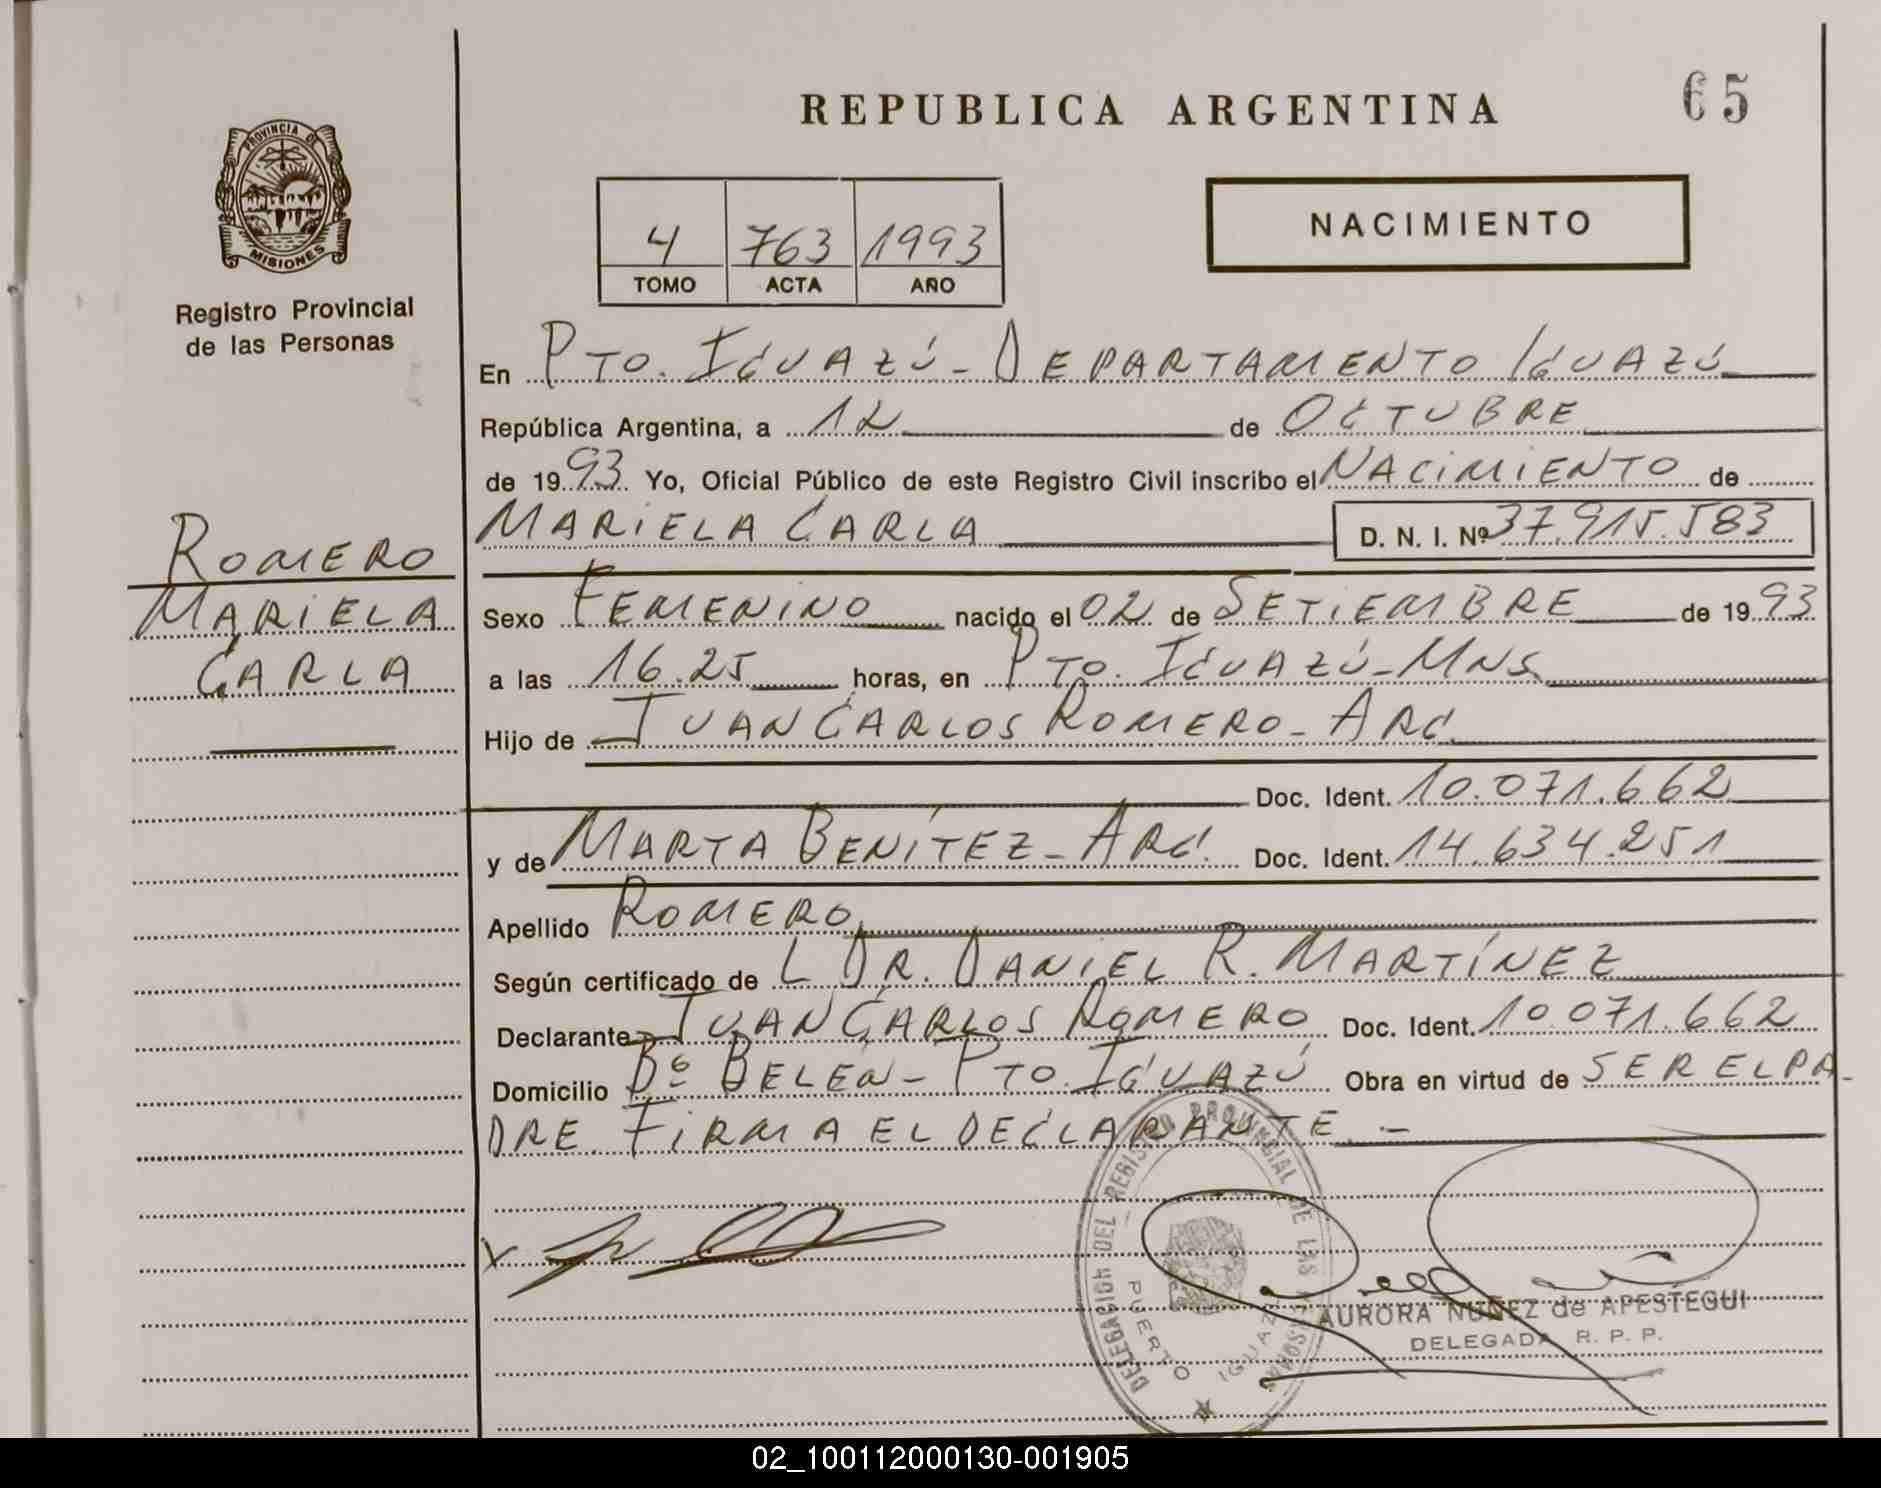 65
REPUBLICA ARGENTINA
PROVINCIA DE
MISIONES
Registro Provincial
de las Personas
4 763 1993
TOMO ACTA AÑO
NACIMIENTO
En PTO. IGUAZÚ - DEPARTAMENTO IGUAZÚ
República Argentina, a 12 de OCTUBRE
de 1993 Yo, Oficial Público de este Registro Civil inscribo el NACIMIENTO de
MARIELA CARLA D. N. I. Nº 37.915.583
ROMERO
MARIELA
CARLA
Sexo FEMENINO nacido el 02 de SETIEMBRE de 1993
a las 16.25 horas, en PTO. IGUAZÚ - MNS.
Hijo de JUAN CARLOS ROMERO - ARG.
Doc. Ident. 10.071.662
y de MARTA BENÍTEZ - ARG. Doc. Ident. 14.634.251
Apellido ROMERO
Según certificado de L DR. DANIEL R. MARTÍNEZ
Declarante JUAN CARLOS ROMERO Doc. Ident. 10.071.662
Domicilio Bº BELÉN - PTO. IGUAZÚ Obra en virtud de SER EL PA-
DRE. FIRMA EL DECLARANTE. -
DELEGACION DEL REGISTRO PROVINCIAL DE LAS PERSONAS
PUERTO IGUAZU
AURORA NUÑEZ de APESTEGUI
DELEGADA R. P. P.
02_100112000130-001905